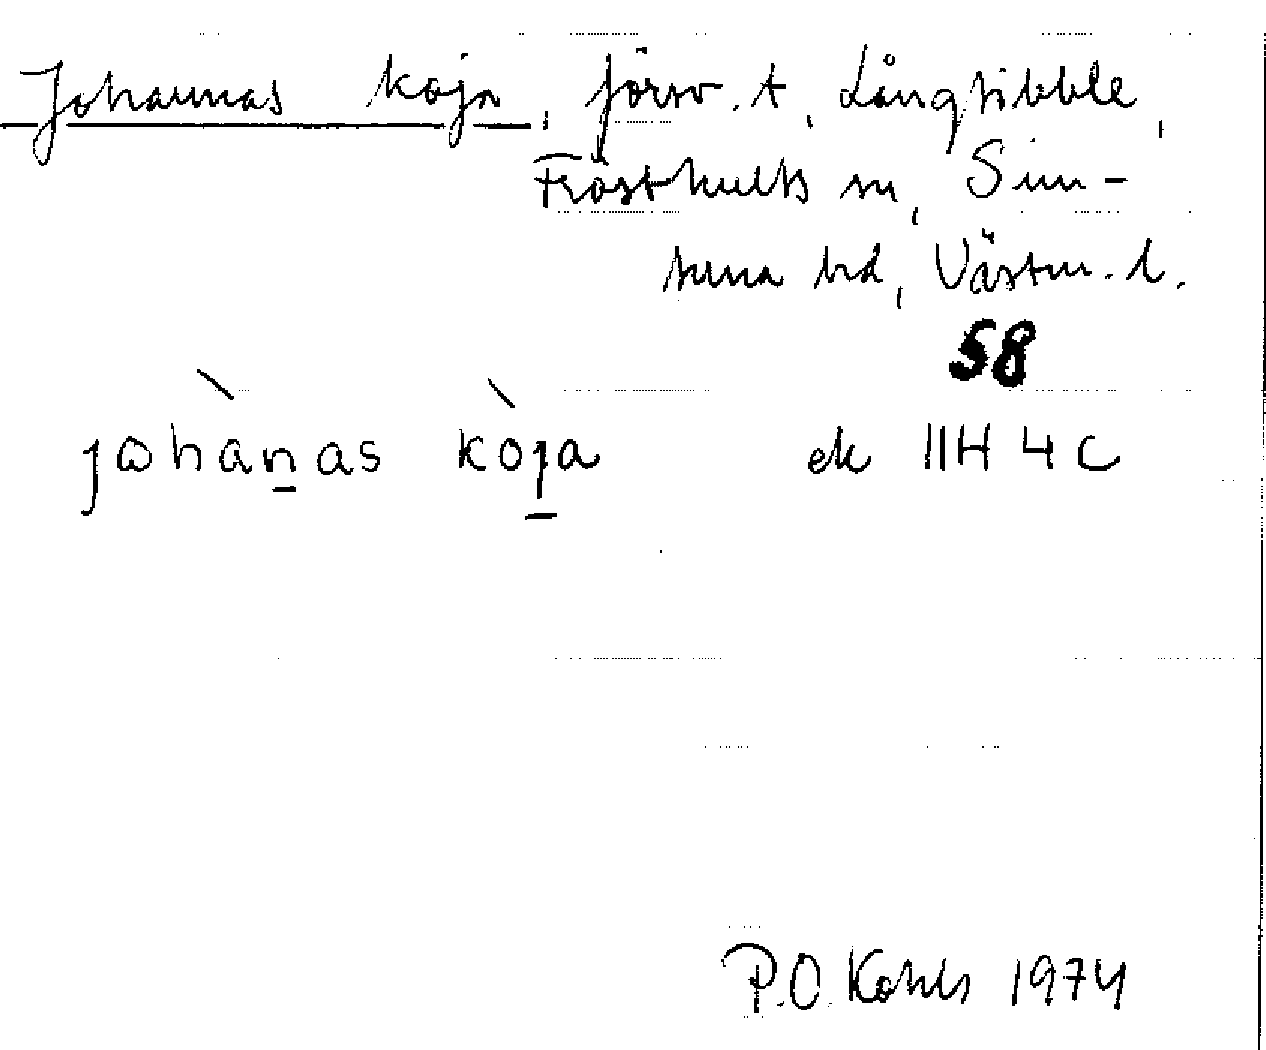 Johannas koja, försv. t, Långsibble,
Frösthults sn, Sim-
tuna hd, Västm. l.
58
johànas kòja ek 11H 4C
P.O. Kohls 1974